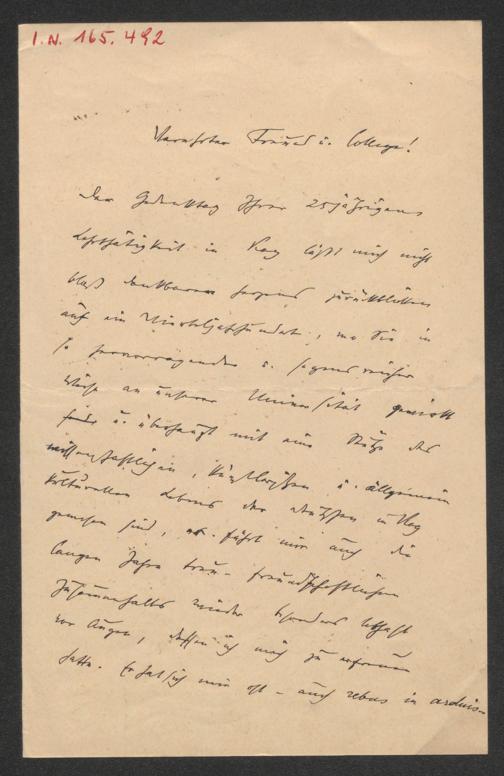 I.N. 165.492
Verehrter Freund u. College!
Der Gedenktag Ihrer 25jährigen
Lehrthätigkeit in Prag läßt mich nicht
bloß dankbaren Herzens zurückblicken
auf ein Vierteljahrhundert, wo Sie in
so hervorragender u. segensreicher
Weise an unserer Universität gewirkt
u. überhaupt mit eine Stütze des
wissenschaftlichen, künstlerischen u. allgemein
kulturellen Lebens der Deutschen in Prag
gewesen sind, es führt mir auch die
langen Jahre treu-freundschaftlichen
Zusammenhalts wieder besonders lebhaft
vor Augen, dessen ich mich zu erfreuen
hatte. Er hat sich mir oft – auch rebus in arduis –